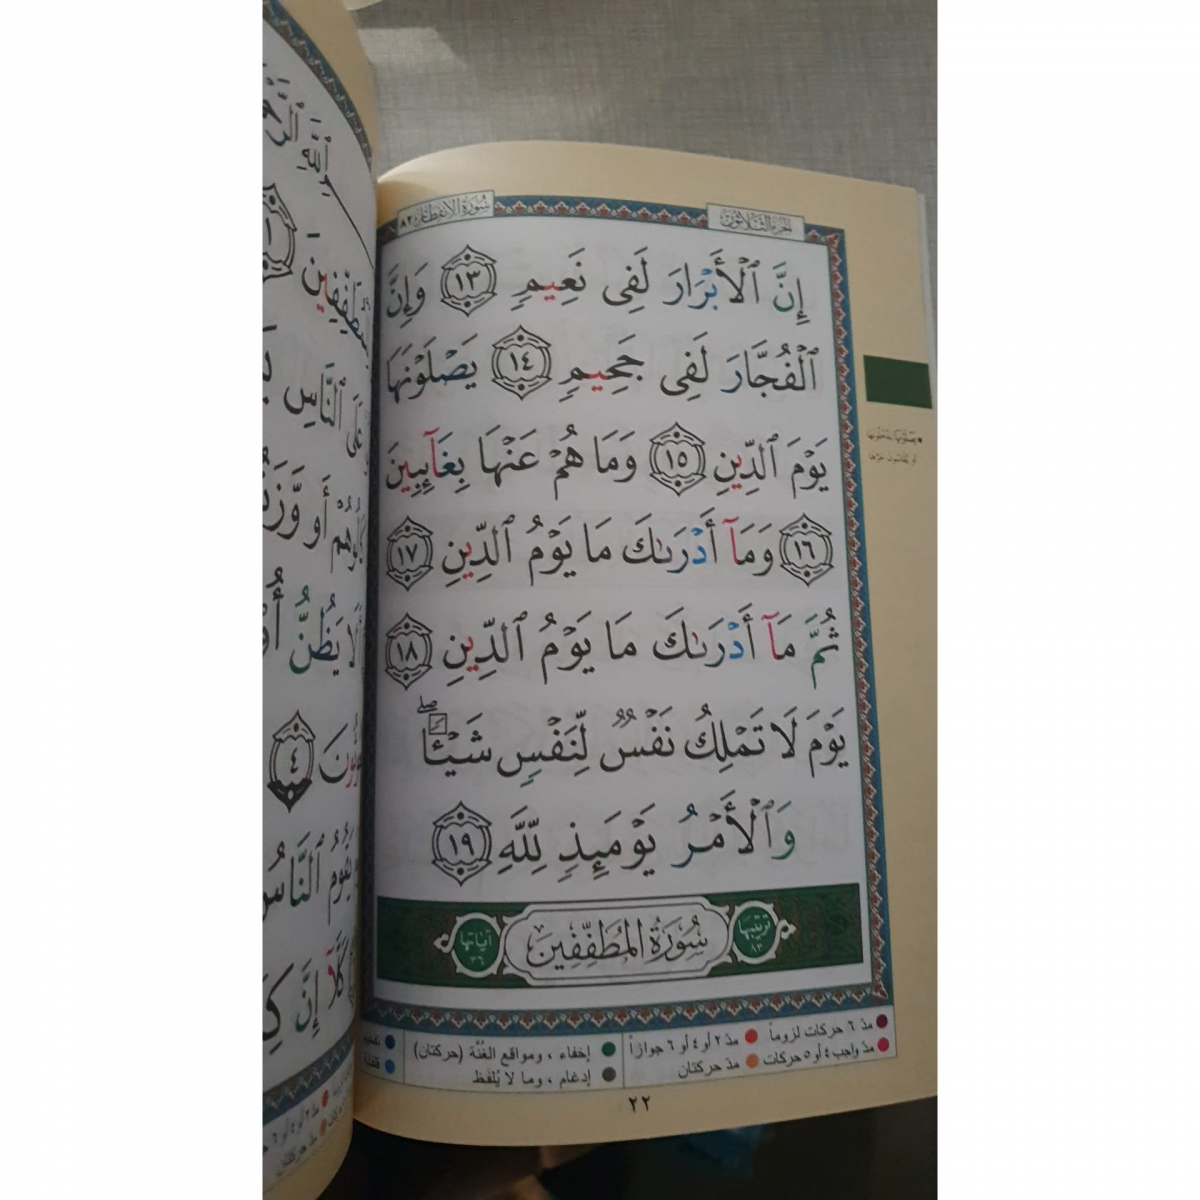 الجزء الثلاثون
سورة الانفطار ٨٢
إِنَّ ٱلْأَبْرَارَ لَفِى نَعِيمٍ ١٣ وَإِنَّ
ٱلْفُجَّارَ لَفِى جَحِيمٍ ١٤ يَصْلَوْنَهَا
يَوْمَ ٱلدِّينِ ١٥ وَمَا هُمْ عَنْهَا بِغَآئِبِينَ
١٦ وَمَآ أَدْرَىٰكَ مَا يَوْمُ ٱلدِّينِ ١٧
ثُمَّ مَآ أَدْرَىٰكَ مَا يَوْمُ ٱلدِّينِ ١٨
يَوْمَ لَا تَمْلِكُ نَفْسٌ لِّنَفْسٍ شَيْـًٔا ۖ
وَٱلْأَمْرُ يَوْمَئِذٍ لِّلَّهِ ١٩
ترتيبها ٨٣
سُورَةُ المُطَفِّفِينَ
آياتها ٣٦
مدّ ٦ حركات لزوماً
مدّ ٢ أو ٤ أو ٦ جوازاً
إخفاء ، ومواقع الغُنَّة (حركتان)
مدّ واجب ٤ أو ٥ حركات
مدّ حركتان
إدغام ، وما لا يُلفَظ
٢٢
ٱللَّهِ
١
عَلَى ٱلنَّاسِ
أَو وَّزَ
يَظُنُّ
٤
يَقُومُ ٱلنَّاسُ
كَلَّآ إِنَّ